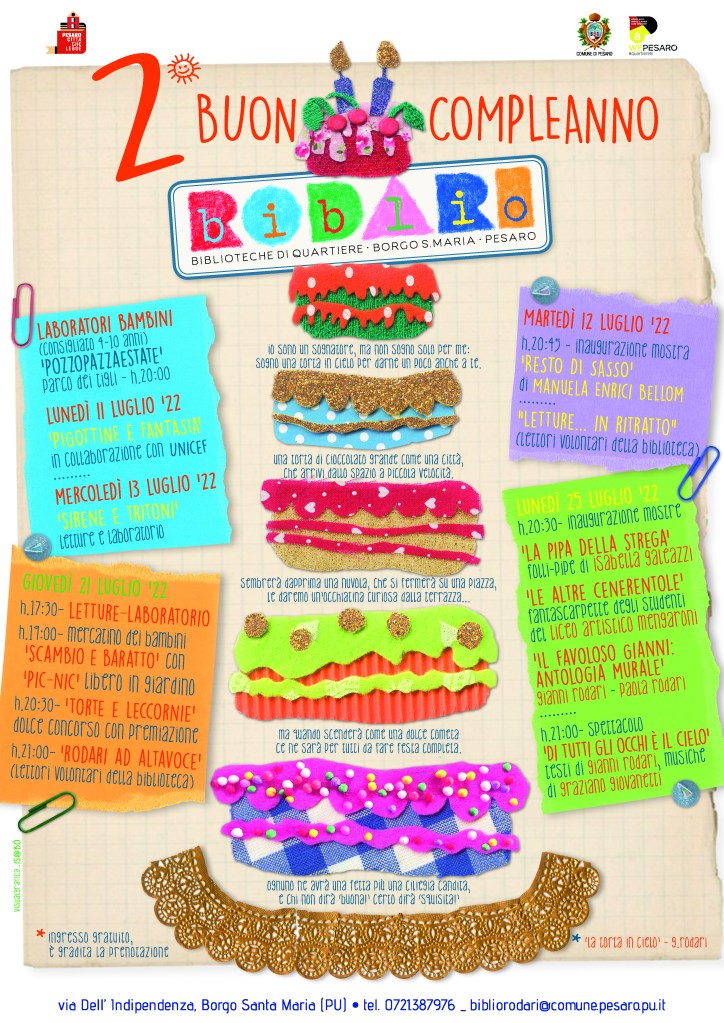 PESARO
CITTÀ
CHE
LEGGE
COMUNE DI PESARO
8
WEPESARO
#quartiere8
2°
BUON COMPLEANNO
BIBLIRO
BIBLIOTECHE DI QUARTIERE • BORGO S.MARIA • PESARO
LABORATORI BAMBINI
(consigliato 4-10 anni)
'POZZOPAZZAESTATE'
Parco dei Tigli - h.20:00
LUNEDÌ 11 LUGLIO '22
'PIGOTTINE E FANTASIA'
in collaborazione con UNICEF
.........
MERCOLEDÌ 13 LUGLIO '22
'SIRENE E TRITONI'
letture e laboratorio
GIOVEDÌ 21 LUGLIO '22
h.17:30- LETTURE-LABORATORIO
h.19:00- mercatino dei bambini
'SCAMBIO E BARATTO' con
'PIC-NIC' libero in giardino
h.20:30- 'TORTE E LECCORNIE'
dolce concorso con premiazione
h.21:00- 'RODARI AD ALTAVOCE'
(lettori volontari della biblioteca)
io sono un sognatore, ma non sogno solo per me:
sogno una torta in cielo per darne un poco anche a te.
una torta di cioccolato grande come una città,
che arrivi dallo spazio a piccola velocità.
sembrerà dapprima una nuvola, che si fermerà su una piazza,
le daremo un'occhiatina curiosa dalla terrazza...
ma quando scenderà come una dolce cometa
ce ne sarà per tutti da fare festa completa.
ognuno ne avrà una fetta più una ciliegia candita,
e chi non dirà 'buona!' certo dirà 'squisita!'
MARTEDÌ 12 LUGLIO '22
h.20:45 - inaugurazione mostra
'RESTO DI SASSO'
di MANUELA ENRICI BELLOM
.........
"LETTURE... IN RITRATTO"
(lettori volontari della biblioteca)
LUNEDÌ 25 LUGLIO '22
h.20:30- inaugurazione mostre
'LA PIPA DELLA STREGA'
folli-pipe di isabella galeazzi
'LE ALTRE CENERENTOLE'
fantascarpette degli studenti
del Liceo artistico Mengaroni
'IL FAVOLOSO GIANNI:
ANTOLOGIA MURALE'
gianni rodari - paola rodari
.........
h.21:00- spettacolo
'DI TUTTI GLI OCCHI È IL CIELO'
testi di gianni rodari, musiche
di graziano giovanetti
* ingresso gratuito,
è gradita la prenotazione
* 'la torta in cielo' - g.rodari
via Dell' Indipendenza, Borgo Santa Maria (PU) • tel. 0721387976 _ bibliorodari@comune.pesaro.pu.it